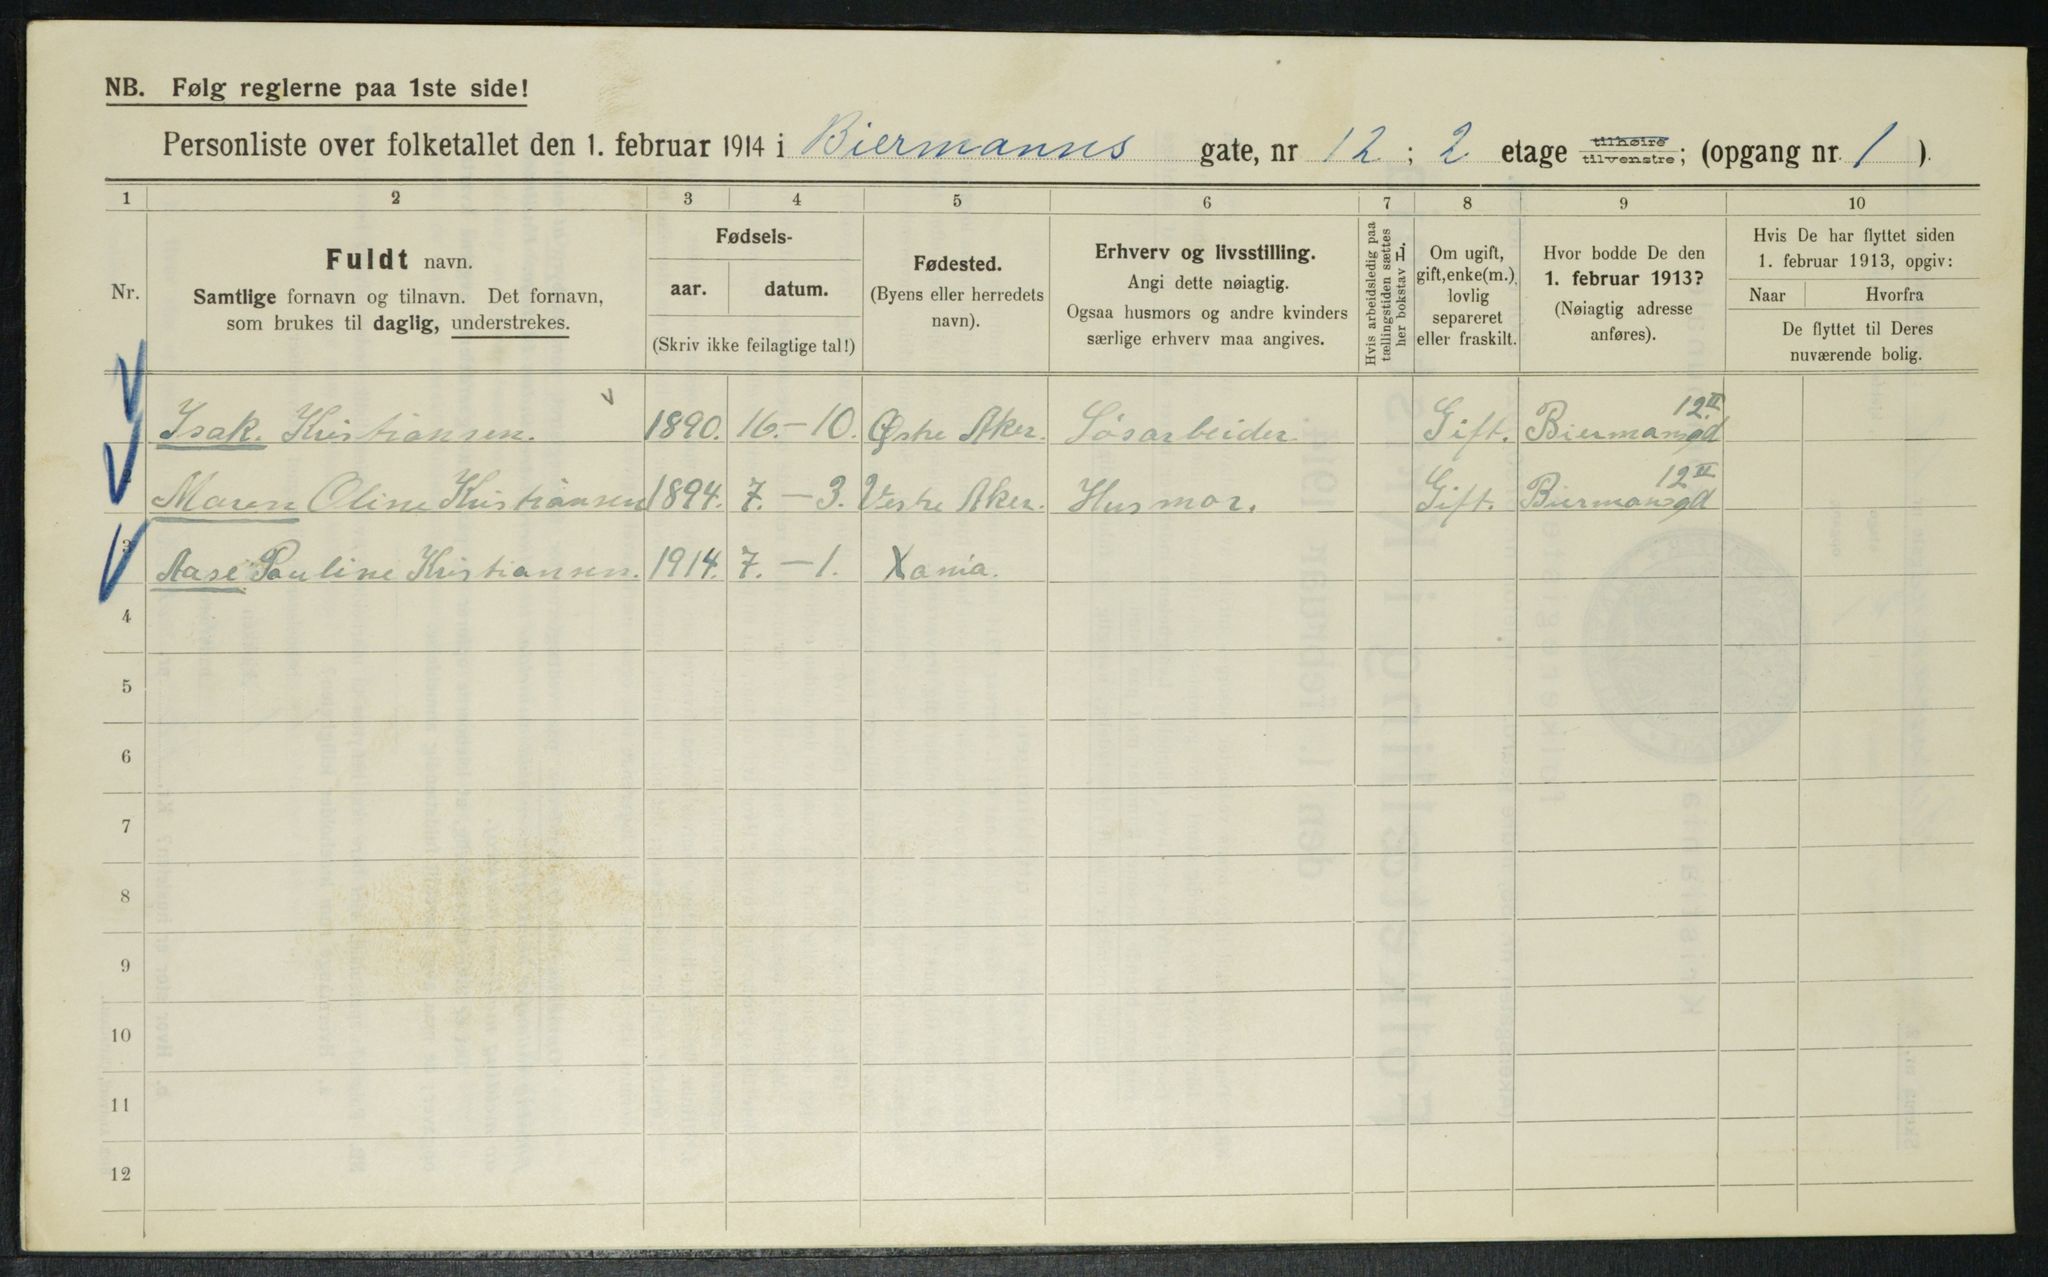 NB. Følg reglerne paa 1ste side!
Personliste over folketallet den 1. februar 1914 i Biermanns gate, nr 12 ; 2 etage tilhøire tilvenstre; (opgang nr. 1 ).
1 2 3 4 5 6 7 8 9 10
Nr.
Fuldt navn.
Samtlige fornavn og tilnavn. Det fornavn,
som brukes til daglig, understrekes.
Fødsels-
aar. datum.
(Skriv ikke feilagtige tal!)
Fødested.
(Byens eller herredets
navn).
Erhverv og livsstilling.
Angi dette nøiagtig.
Ogsaa husmors og andre kvinders
særlige erhverv maa angives.
Hvis arbeidsledig paa
tællingstiden sættes
her bokstav L.
Om ugift,
gift, enke(m.),
lovlig
separeret
eller fraskilt.
Hvor bodde De den
1. februar 1913?
(Nøiagtig adresse
anføres).
Hvis De har flyttet siden
1. februar 1913, opgiv:
Naar Hvorfra
De flyttet til Deres
nuværende bolig.
Isak. Kristiansen. 1890. 16.-10. Østre Aker. Gift. Biermansgd 12.II
2 Maren Oline Kristiansen 1894. 7.-3. Vestre Aker. Husmor. Gift. Biermansgd 12 II
3 Aase Pauline Kristiansen. 1914. 7.-1. Xania.
4
5
6
7
8
9
10
11
12